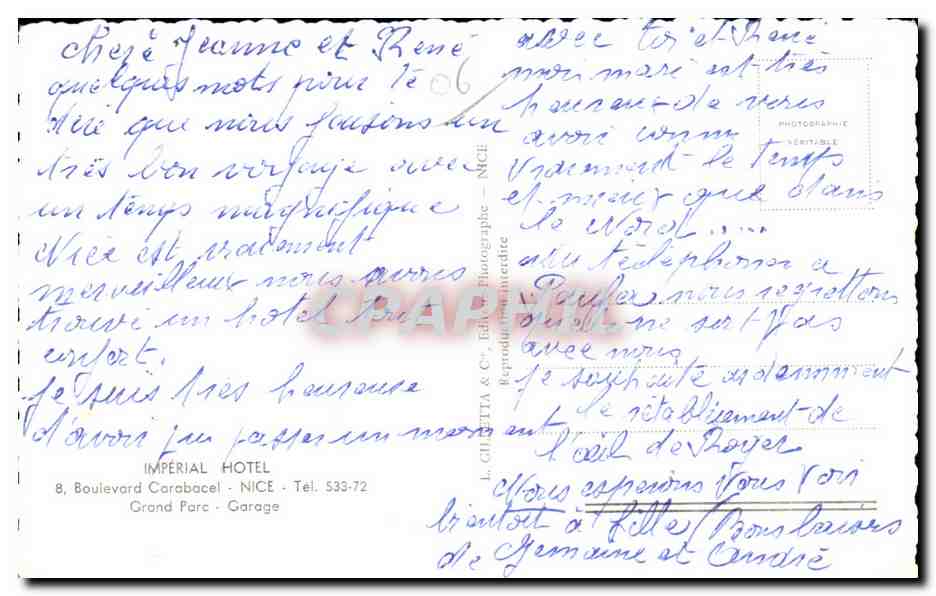 chère Jeanne et René
quelques mots pour te
dire que nous faisons un
très bon voyage avec
un temps magnifique
Nice est vraiment
merveilleux nous avons
trouvé un hotel tout
confort.
je suis très heureuse
d'avoir pu passer un moment
IMPÉRIAL HOTEL
8, Boulevard Carabacel - NICE - Tel. 533-72
Grand Parc - Garage
06
L. GILLETTA & Cie, Editeur Photographe - NICE
Reproduction interdite
CPAPHIL
PHOTOGRAPHIE
VÉRITABLE
avec toi et René
mon mari est très
heureux de vous
avoir connu
vraiment le temps
et mieux que dans
le Nord .....
téléphoner a
Paula nous regrettons
qu'elle ne soit pas
avec nous
je souhaite ardemment
le rétablissement de
l'œil de Roger
Nous esperons vous voir
bientot à Lille Bons baisers
de Germaine et André